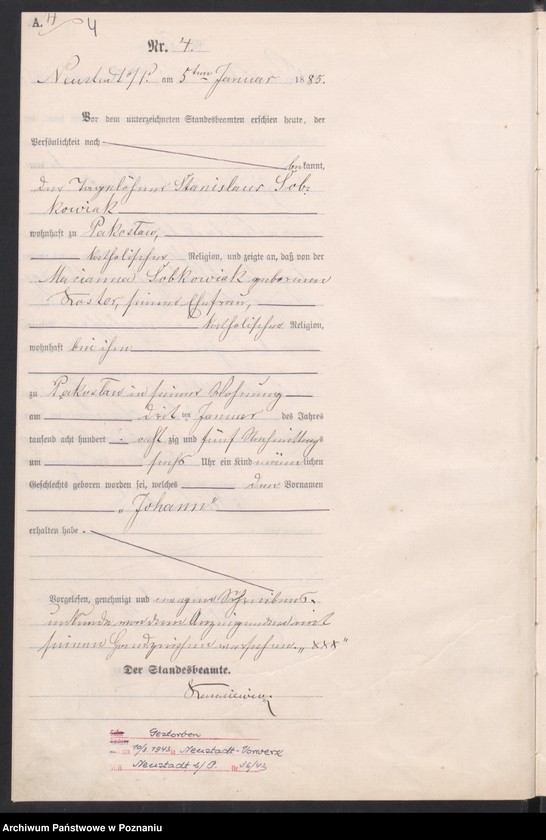 A. 4
4
Nr. 4.
Neustadt b/P. am 5ten Januar 1885.
Vor dem unterzeichneten Standesbeamten erschien heute, der
Persönlichkeit nach
bekannt,
der Tagelöhner Stanislaus Sob-
kowiak
wohnhaft zu Pakoslaw,
katholischer Religion, und zeigte an, daß von der
Marianna Sobkowiak geborenen
Koster, seiner Ehefrau,
katholischer Religion,
wohnhaft bei ihm
zu Pakoslaw in seiner Wohnung
am dritten Januar des Jahres
tausend acht hundert acht zig und fünf Nachmittags
um sechs Uhr ein Kind männlichen
Geschlechts geboren worden sei, welches den Vornamen
„Johann“
erhalten habe.
Vorgelesen, genehmigt und wegen Schreibens-
unkunde von dem Anzeigenden mit
seinen Handzeichen versehen. „xxx“
Der Standesbeamte.
Gestorben
10/3 1943 in Neustadt-Vorwerk
Neustadt b/P. Nr 16/43
Archiwum Państwowe w Poznaniu